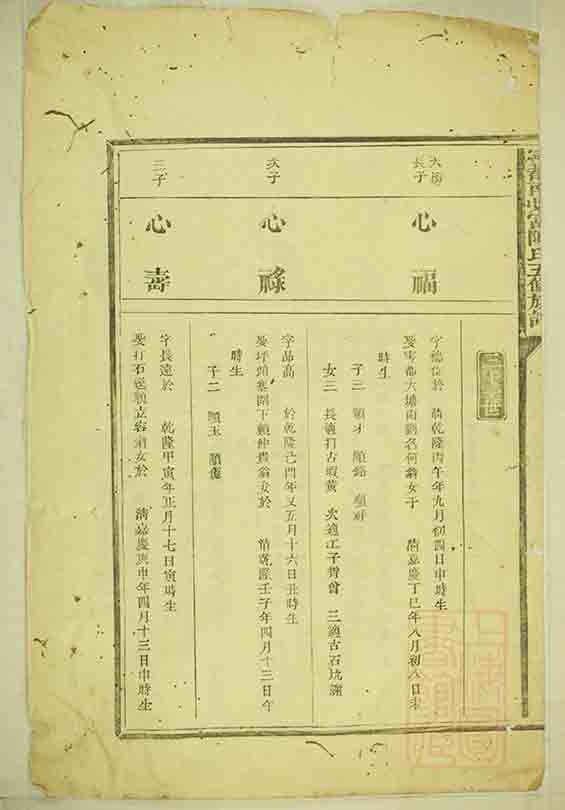 大樹長子
心福
字德位於 清乾隆丙午年九月初四日申時生
娶雩都大塘面劉名何翁女于 清嘉慶丁巳年八月初八日未
時生
子三 顯才 顯 顯祥
女三 長適打古 黃 次適江子 曾 三適古石坑謝
次子
心祿
字品高 於乾隆己酉年又五月十六日丑時生
娶坪頭寨 下賴仲貴翁女於 清乾隆壬子年四月十三日午
時生
子二 顯玉 顯
三子
心壽
字長遠於 乾隆甲寅年正月十七日寅時生
娶打石 賴立容翁女於 清嘉慶庚申年四月十三日申時生